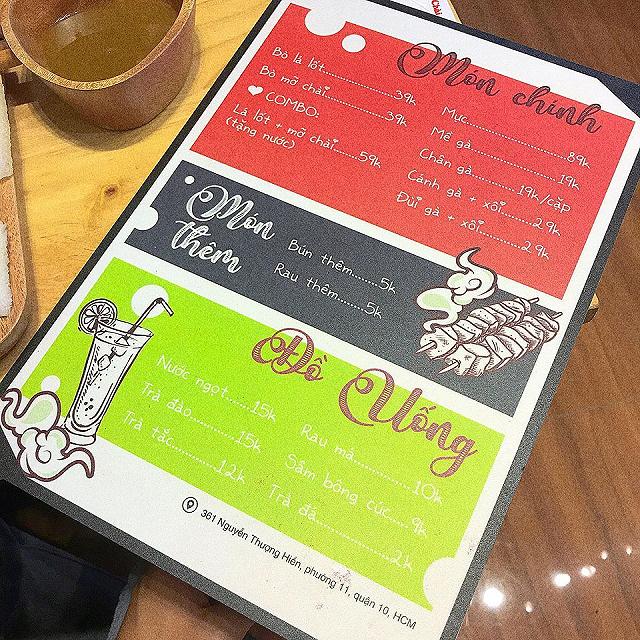 Món chính
Bò lá lốt....................39k
Bò mỡ chài..............39k
COMBO:
Lá lốt + mỡ chài.....59k
(tặng nước)
Mực.............................89k
Mề gà.........................19k
Chân gà............19k/cặp
Cánh gà + xôi............29k
Đùi gà + xôi..............29k
Món
thêm
Bún thêm........5k
Rau thêm........5k
Đồ Uống
Nước ngọt......15k
Trà đào............15k
Trà tắc............12k
Rau má..............10k
Sâm bông cúc.... 9k
Trà đá....................2k
361 Nguyễn Thượng Hiền, phường 11, quận 10, HCM